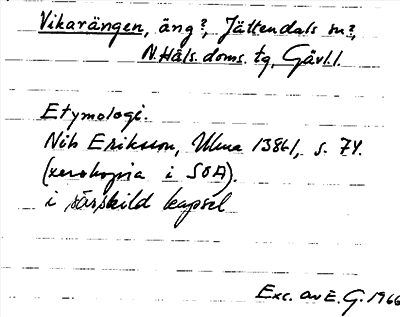 Vikarängen, äng?, Jättendals sn?,
N. Häls. doms. tg, Gävl.l.
Etymologi.
Nils Eriksson, Ulma 13861, s. 74.
(xerokopia i SOA).
i särskild kapsel
Exc. av E. G. 1966